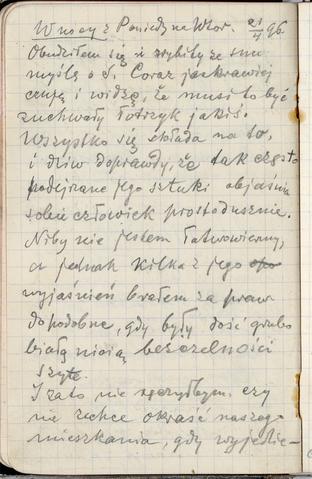 W nocy z Poniedz. na Wtor. 21/4 96.
Obudziłem się i zrobity ze snu
myślę o J. Coraz jaskrawiej
czuję i widzę, że musi to być
zuchwały łotrzyk jakiś.
Wszystko się składa na to,
i dziw doprawdy, że tak często
podejrzane jego sztuki objaśnia
sobie człowiek prostodusznie.
Niby nie jestem łatwowierny,
a jednak kilka z jego
wyjaśnień brałem za praw
dopodobne, gdy były dość grubo
białą nicią bezczelności
szyte.
I za to nie ręczyłbym czy
nie zechce okraść naszego
mieszkania, gdy wyjedzie-